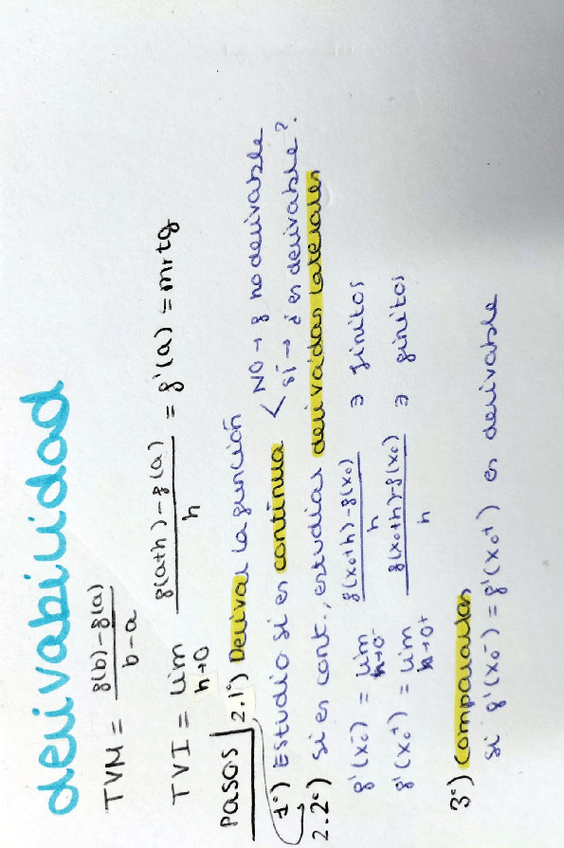 derivabilidad
TVM = f(b)-f(a) / b-a
TVI = lim h→0 f(a+h)-f(a) / h = f'(a) = mrtg
Pasos
2.1º) Derivar la función
1º) Estudio si es continua < NO → f no derivable
Sí → ¿ es derivable?
2.2º) Si es cont., estudias derivadas laterales
f'(x₀⁻) = lim h→0⁻ f(x₀+h)-f(x₀) / h ∃ finitos
f'(x₀⁺) = lim h→0⁺ f(x₀+h)-f(x₀) / h ∃ finitos
3º) Compararlas
si f'(x₀⁻) = f'(x₀⁺) es derivable